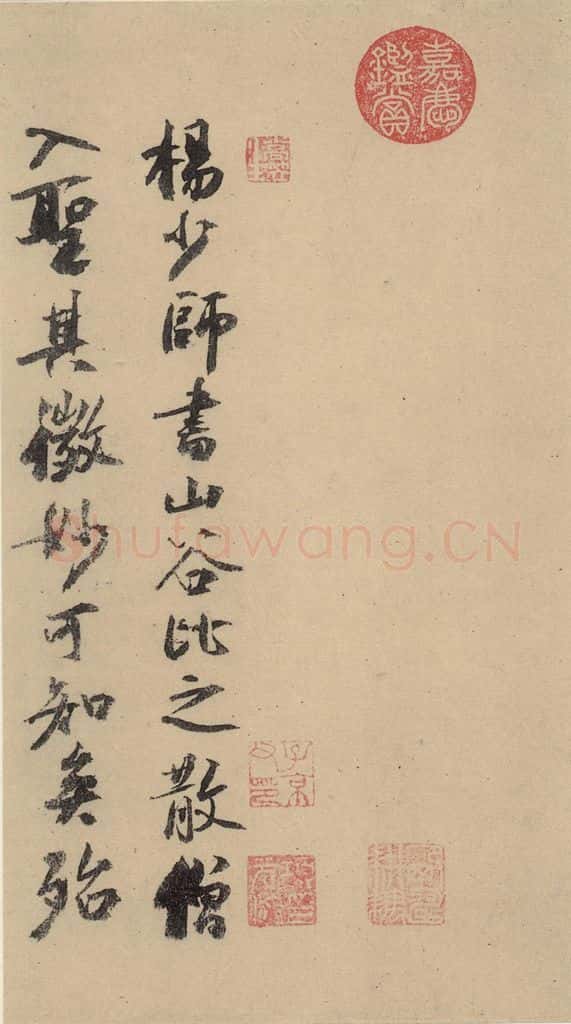 嘉慶鑑賞
楊少師書山谷比之散僧
入聖其微妙可知矣殆
子京父印
Shufawang.CN